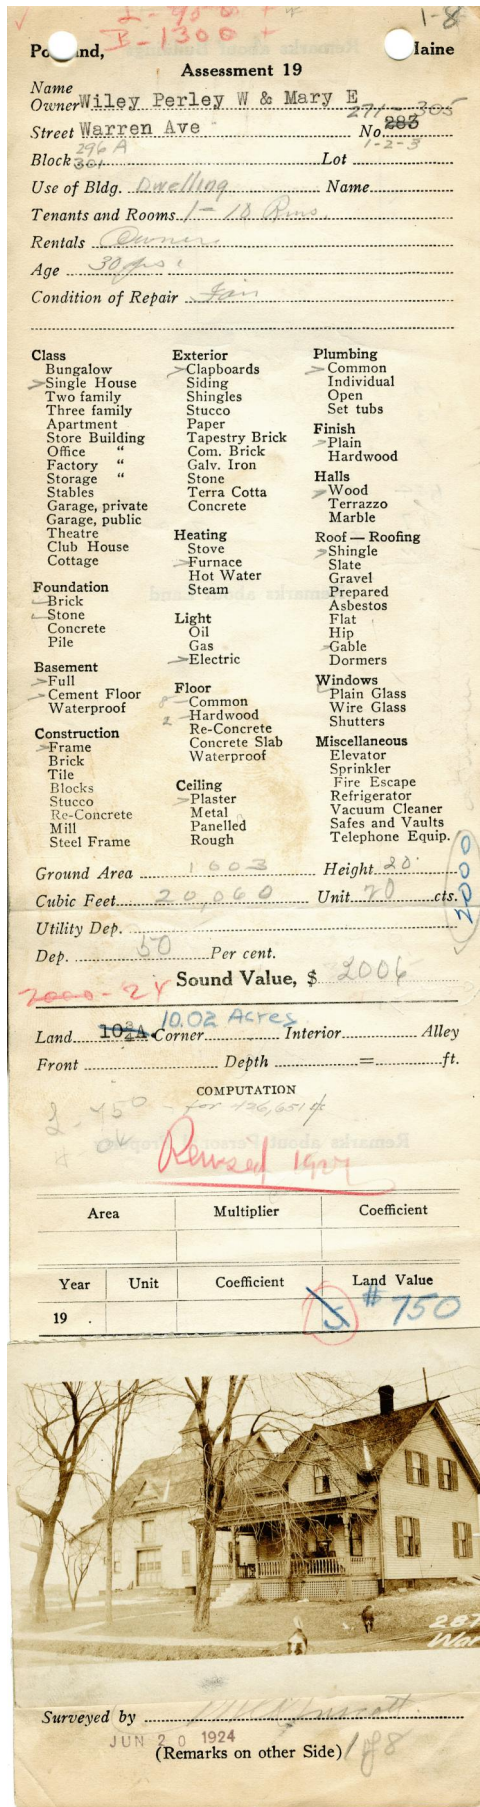 L-950 +
B-1300 +
1-8
Po nd, Maine
Assessment 19
Name
Owner Wiley Perley W & Mary E
271-305
Street Warren Ave No. 283
296 A 1-2-3
Block 301 Lot
Use of Bldg. Dwelling Name
Tenants and Rooms 1-10 Rms.
Rentals Owner
Age 30 yrs
Condition of Repair Fair
Class
Bungalow
Single House
Two family
Three family
Apartment
Store Building
Office "
Factory "
Storage "
Stables
Garage, private
Garage, public
Theatre
Club House
Cottage
Foundation
Brick
Stone
Concrete
Pile
Basement
Full
Cement Floor
Waterproof
Construction
Frame
Brick
Tile
Blocks
Stucco
Re-Concrete
Mill
Steel Frame
Exterior
Clapboards
Siding
Shingles
Stucco
Paper
Tapestry Brick
Com. Brick
Galv. Iron
Stone
Terra Cotta
Concrete
Heating
Stove
Furnace
Hot Water
Steam
Light
Oil
Gas
Electric
Floor
8 Common
2 Hardwood
Re-Concrete
Concrete Slab
Waterproof
Ceiling
Plaster
Metal
Panelled
Rough
Plumbing
Common
Individual
Open
Set tubs
Finish
Plain
Hardwood
Halls
Wood
Terrazzo
Marble
Roof — Roofing
Shingle
Slate
Gravel
Prepared
Asbestos
Flat
Hip
Gable
Dormers
Windows
Plain Glass
Wire Glass
Shutters
Miscellaneous
Elevator
Sprinkler
Fire Escape
Refrigerator
Vacuum Cleaner
Safes and Vaults
Telephone Equip.
Ground Area 1003 Height 20
Cubic Feet 20,060 Unit 20 cts.
2000
Utility Dep.
Dep. 50 Per cent.
Sound Value, $ 2006
2000-24
10.02 Acres
Land Corner Interior Alley
Front Depth = ft.
COMPUTATION
L-750 - for 436,651 #
OK
Revised 1927
Area Multiplier Coefficient
Year Unit Coefficient Land Value
19 . $ 750
287
War
Surveyed by
JUN 20 1924
(Remarks on other Side) 1 of 8